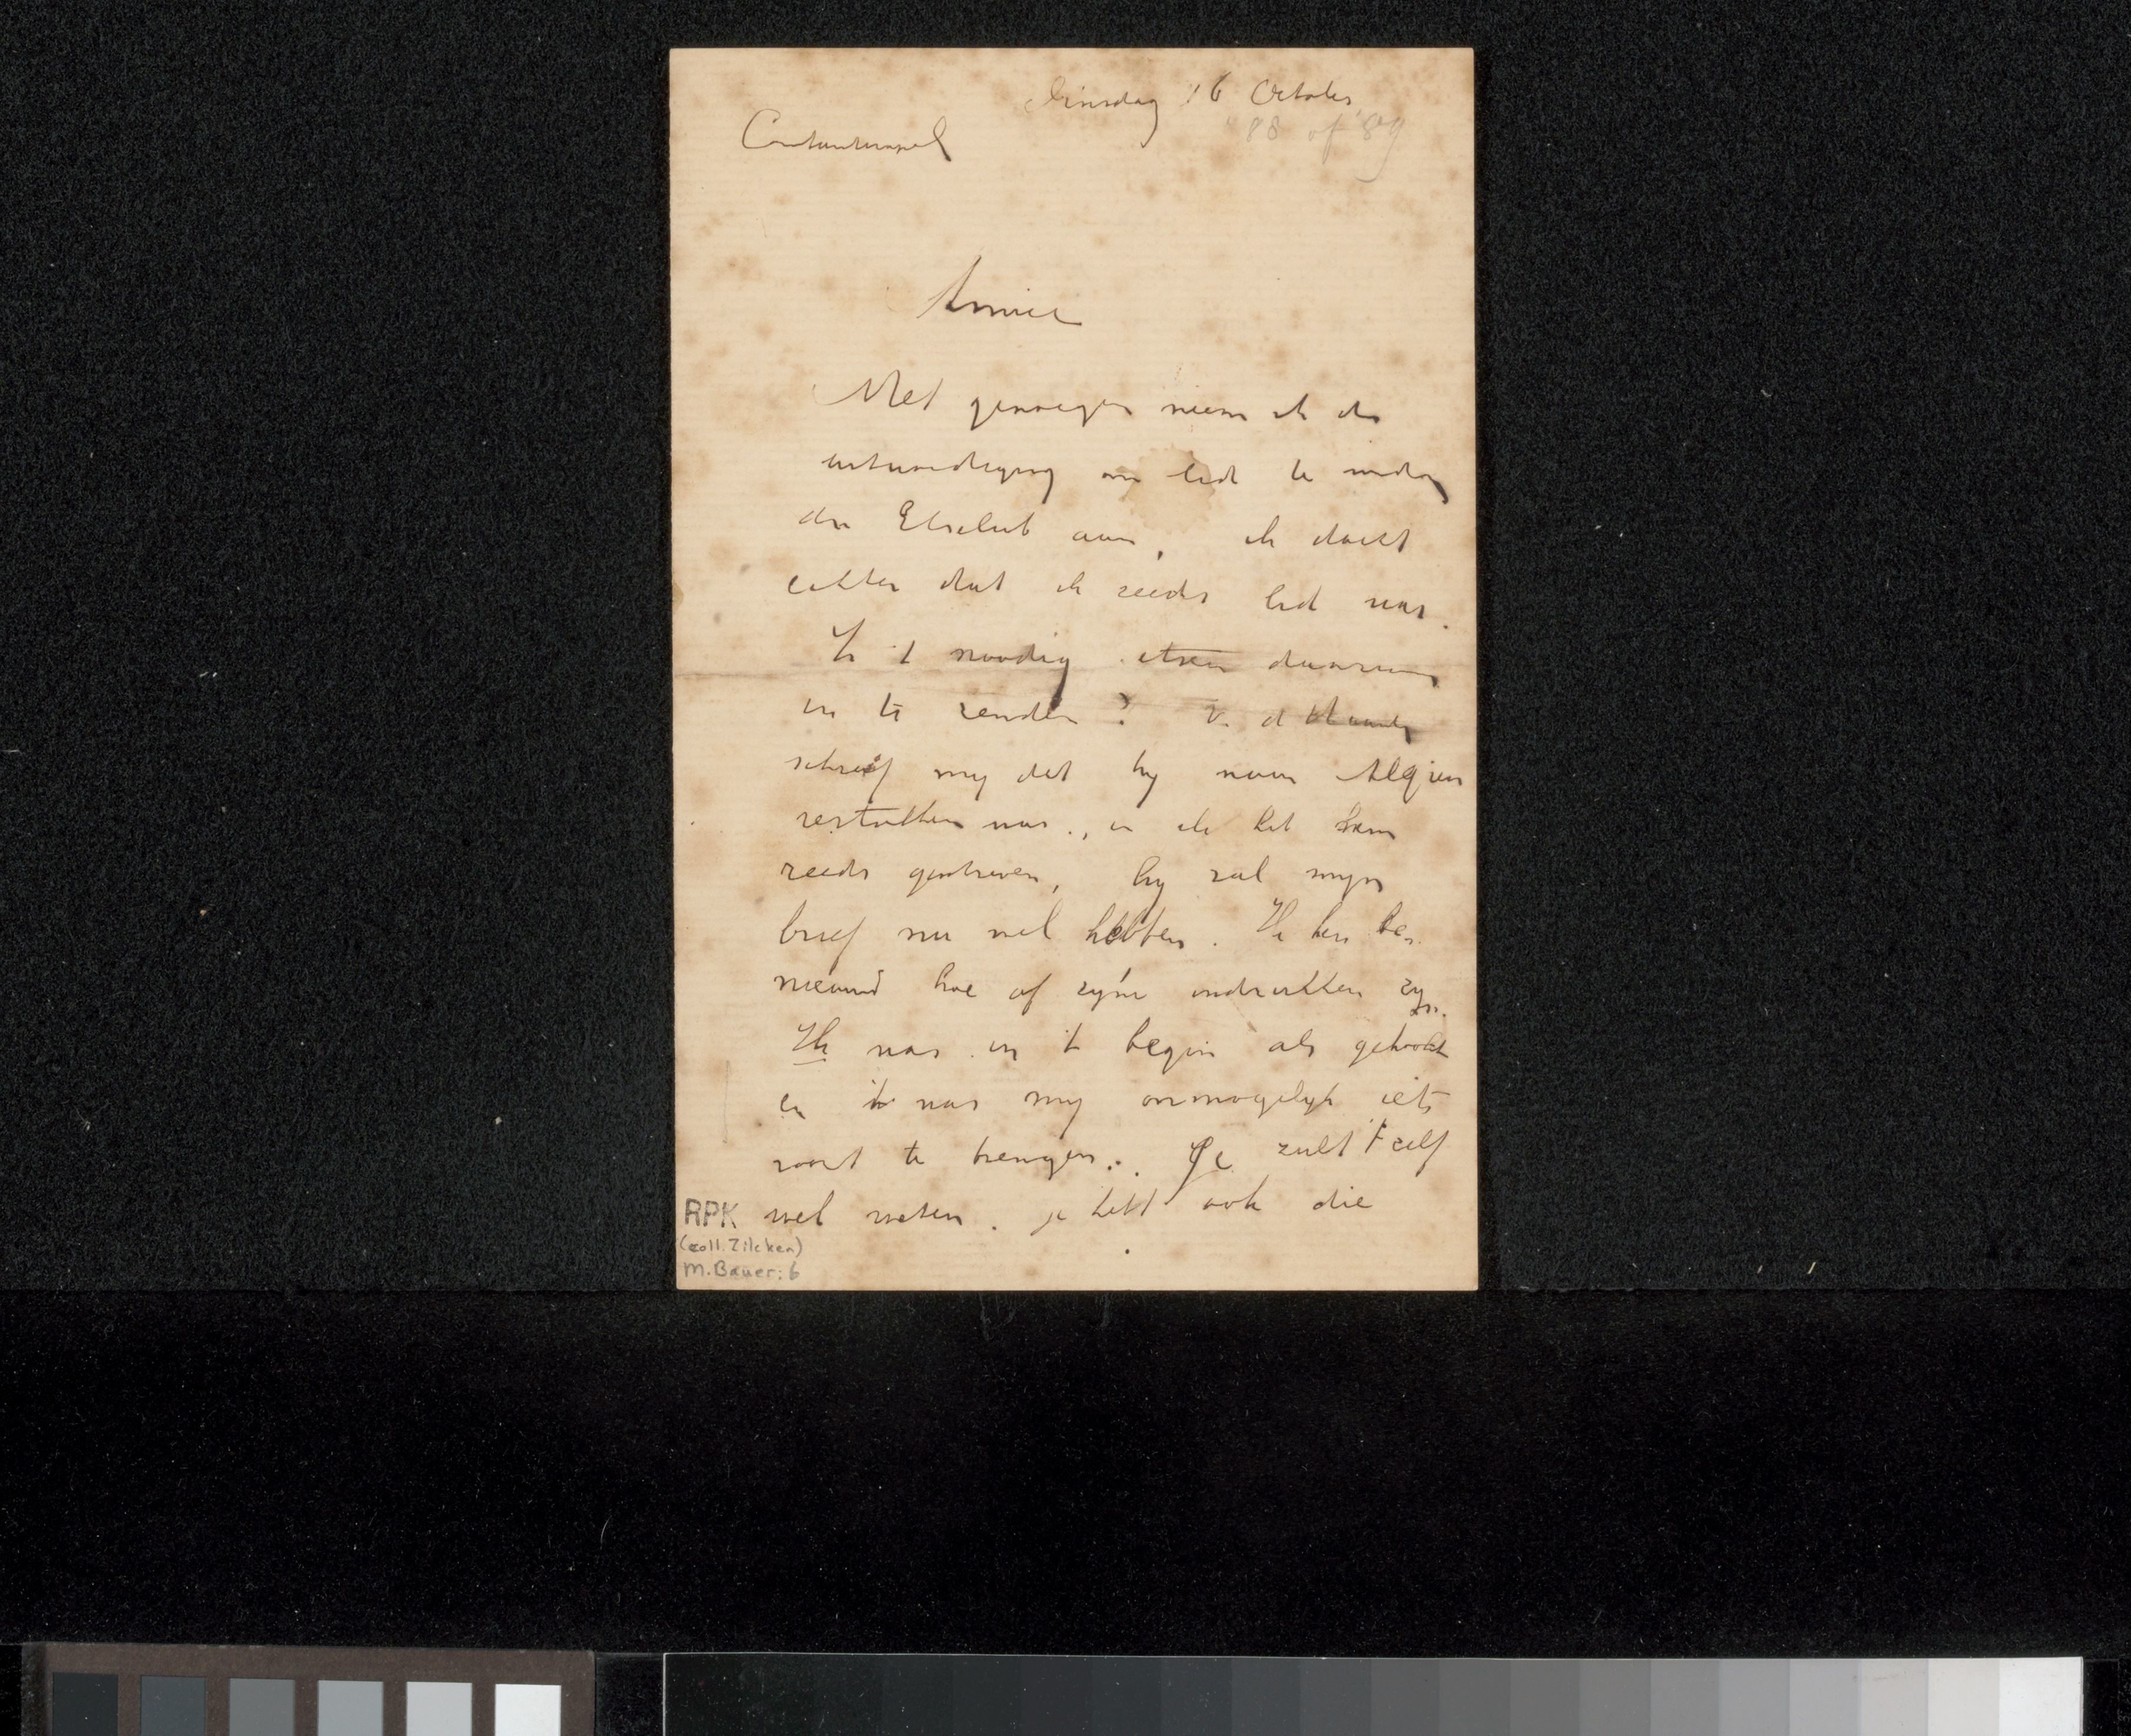 Dinsdag 16 October
'88 of '89
Constantinopel
Amice
Met genoegen neem ik de
uitnoodiging om lid te worden
der Etsclub aan, ik dacht
echter dat ik reeds lid was.
Is 't noodig etsen daarvoor
in te zenden? v. d.
schreef my dat hy naar Algiers
vertrokken was, en ik heb hem
reeds geschreven, hy zal mijn
brief nu wel hebben. Ik ben be-
nieuwd hoe of zijne indrukken zyn.
Ik was in 't begin als gekookt
en 't was my onmogelyk iets
voort te brengen. Je zult 't zelf
wel weten. je hebt ook die
RPK
(coll. Zilcken)
M. Bauer: 6